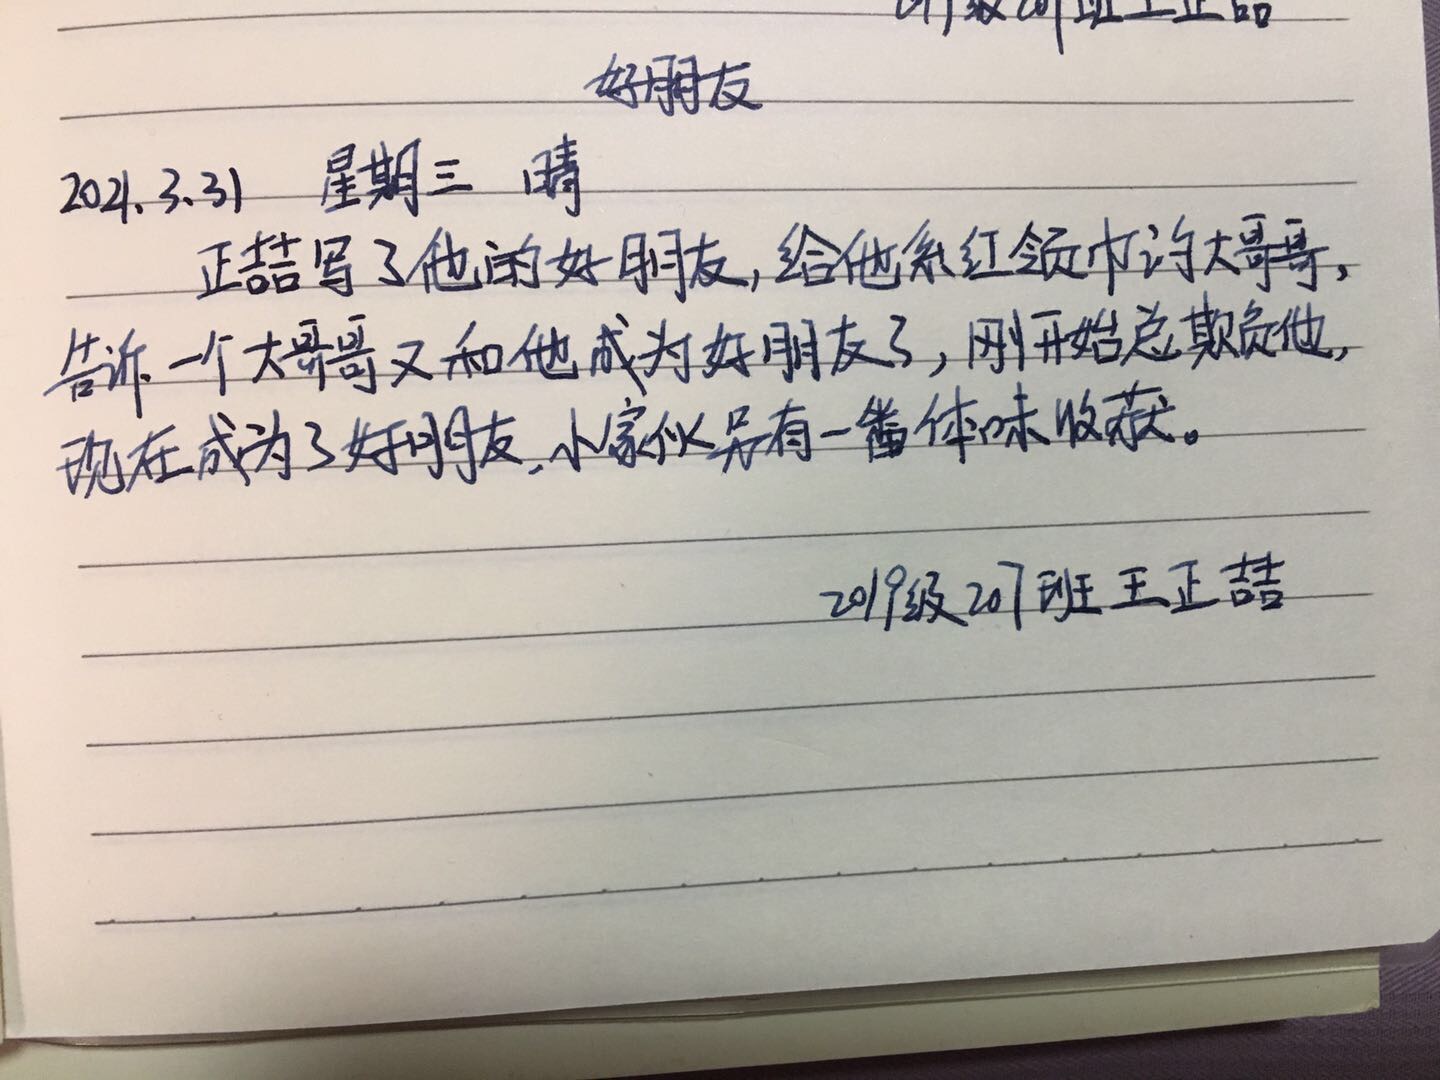 2019级207班王正喆
好朋友
2021.3.31 星期三 晴
正喆写了他的好朋友,给他系红领巾的大哥哥,
告诉一个大哥哥又和他成为好朋友了,刚开始总欺负他,
现在成为了好朋友,小家伙另有一番体味收获。
2019级207班王正喆